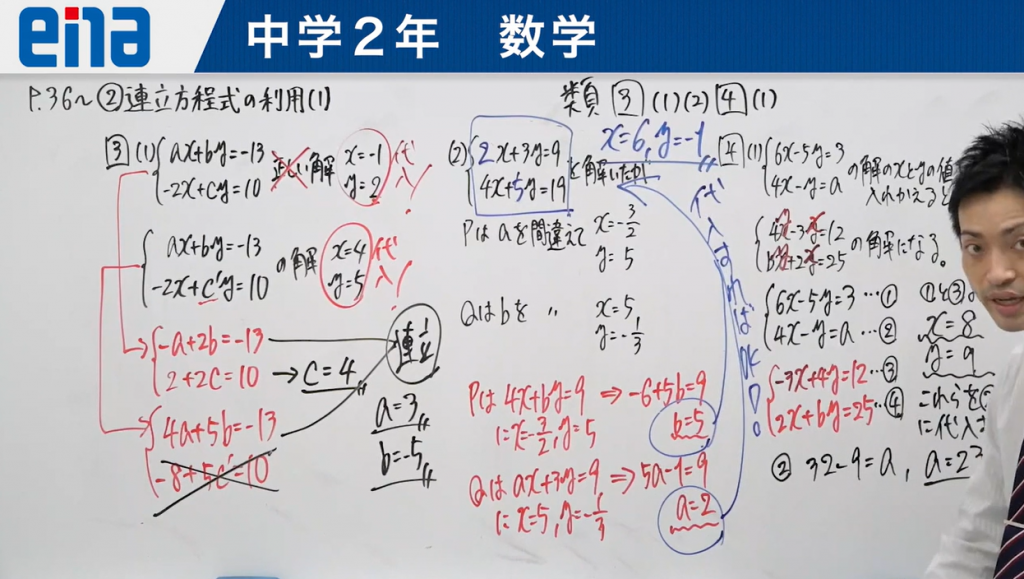 ena 中学2年 数学
P.36~ ②連立方程式の利用(1)
類題 3 (1)(2) 4 (1)
3 (1)
ax+by=-13
-2x+cy=10
正しい解
x=-1
y=2
代入!
ax+by=-13
-2x+c'y=10
の解
x=4
y=5
代入!
-a+2b=-13
2+2c=10
→ c=4
4a+5b=-13
-8+5c'=10
連立
a=3
b=-5
(2)
2x+3y=9
4x+5y=19
を解いたが
x=6, y=-1
Pはaを間違えて
x=-3/2
y=5
Qはbを 〃
x=5,
y=-1/3
Pは 4x+by=9 ⇒ -6+5b=9
に x=-3/2, y=5
b=5
Qは ax+3y=9 ⇒ 5a-1=9
に x=5, y=-1/3
a=2
代入すればOK!
4 (1)
6x-5y=3
4x-y=a
の解のxとyの値
入れかえると
-3y=12
+2=25
の解になる。
6x-5y=3 …①
4x-y=a …②
-3x+4y=12 …③
2x+by=25 …④
①と③
x=8
y=9
これらを
に代入
② 32-9=a,